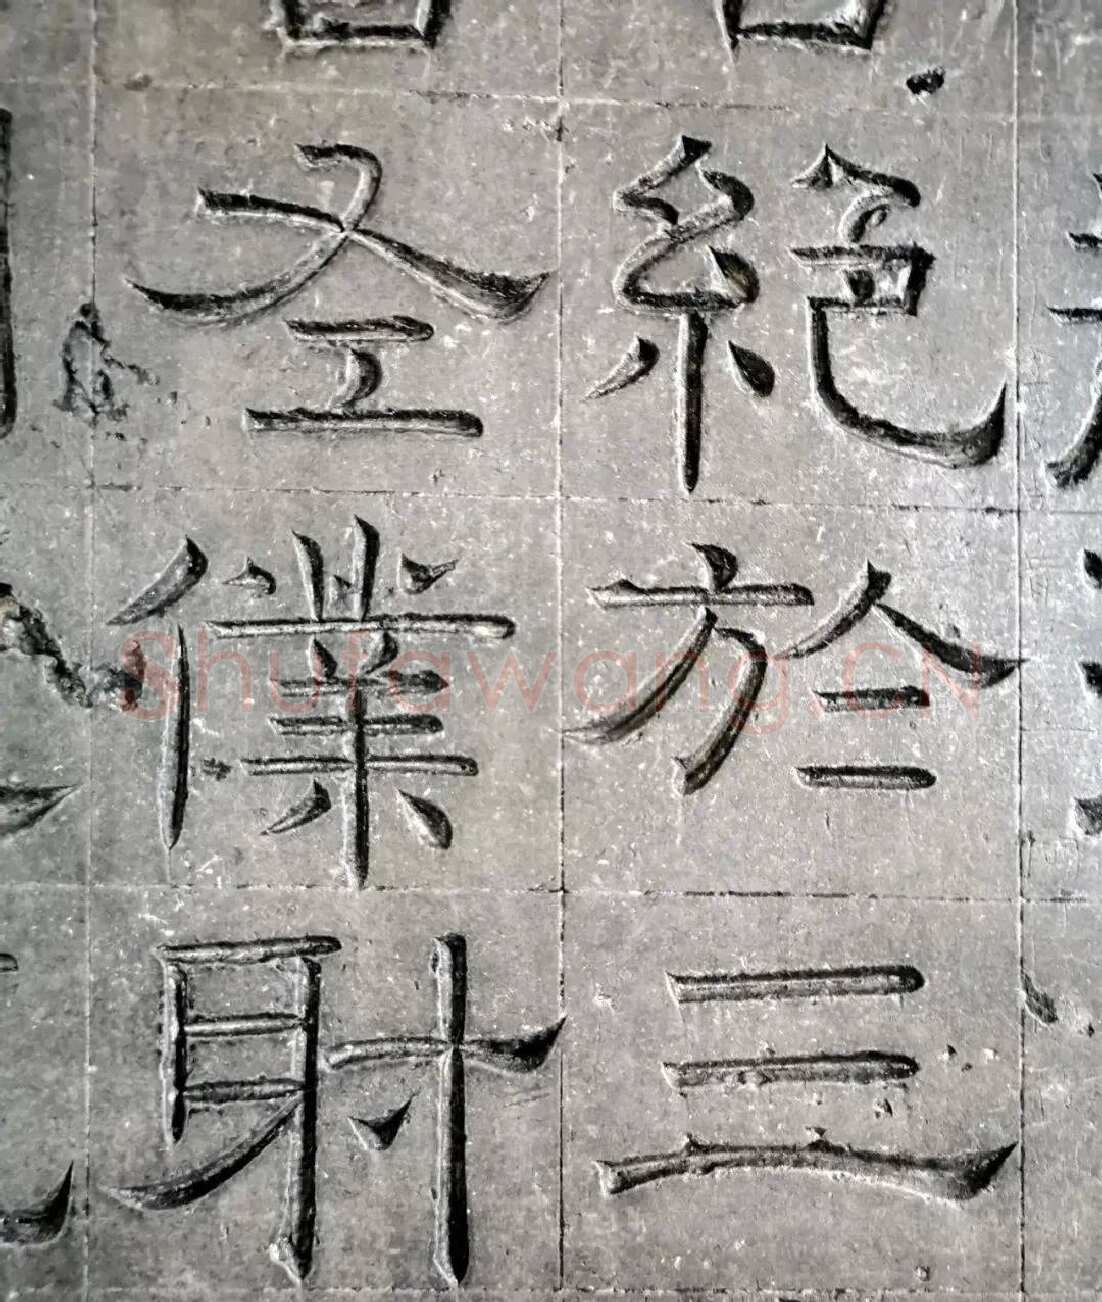 絶於三
左僕射
Shufawang.CN